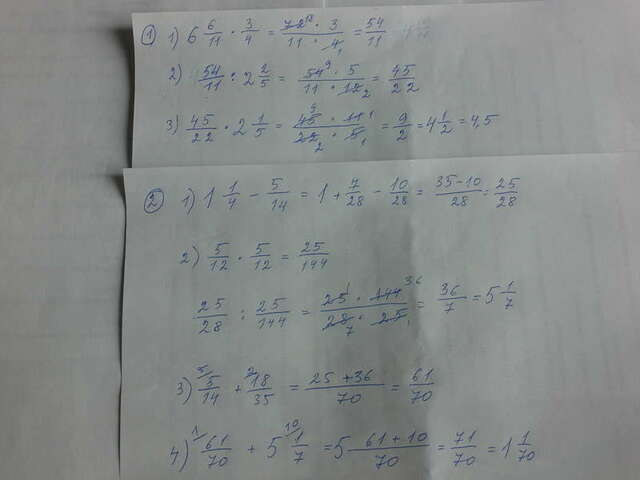 ① 1) 6 6/11 · 3/4 = 72¹⁸ · 3 / 11 · 4₁ = 54/11
2) 54/11 : 2 2/5 = 54⁹ · 5 / 11 · 12₂ = 45/22
3) 45/22 · 2 1/5 = 45⁹ · 11¹ / 22₂ · 5₁ = 9/2 = 4 1/2 = 4,5
② 1) 1 1/4 - 5/14 = 1 + 7/28 - 10/28 = 35-10/28 = 25/28
2) 5/12 · 5/12 = 25/144
25/28 : 25/144 = 25¹ · 144³⁶ / 28₇ · 25₁ = 36/7 = 5 1/7
3) ⁵/5/14 + ²/18/35 = 25+36/70 = 61/70
4) ¹/61/70 + 5 ¹⁰/1/7 = 5 61+10/70 = 71/70 = 1 1/70